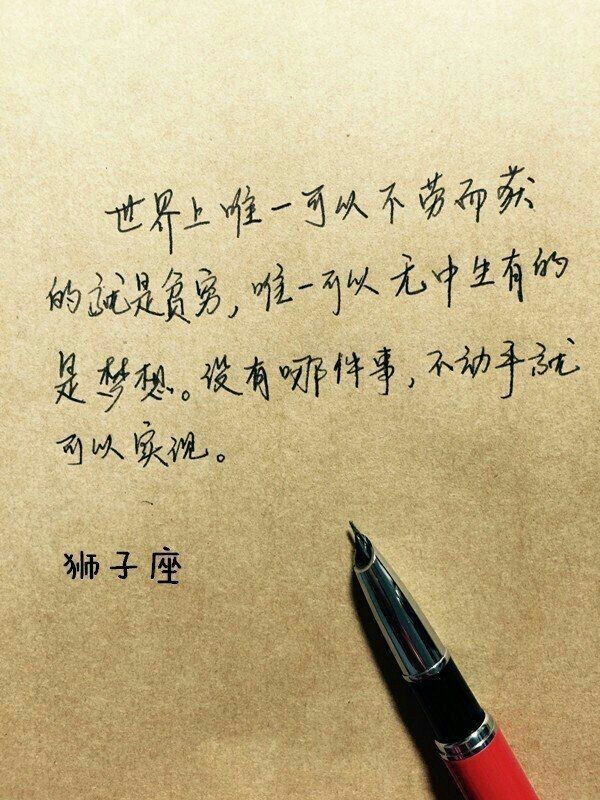 世界上唯一可以不劳而获
的就是贫穷，唯一可以无中生有的
是梦想。没有哪件事，不动手就
可以实现。
狮子座